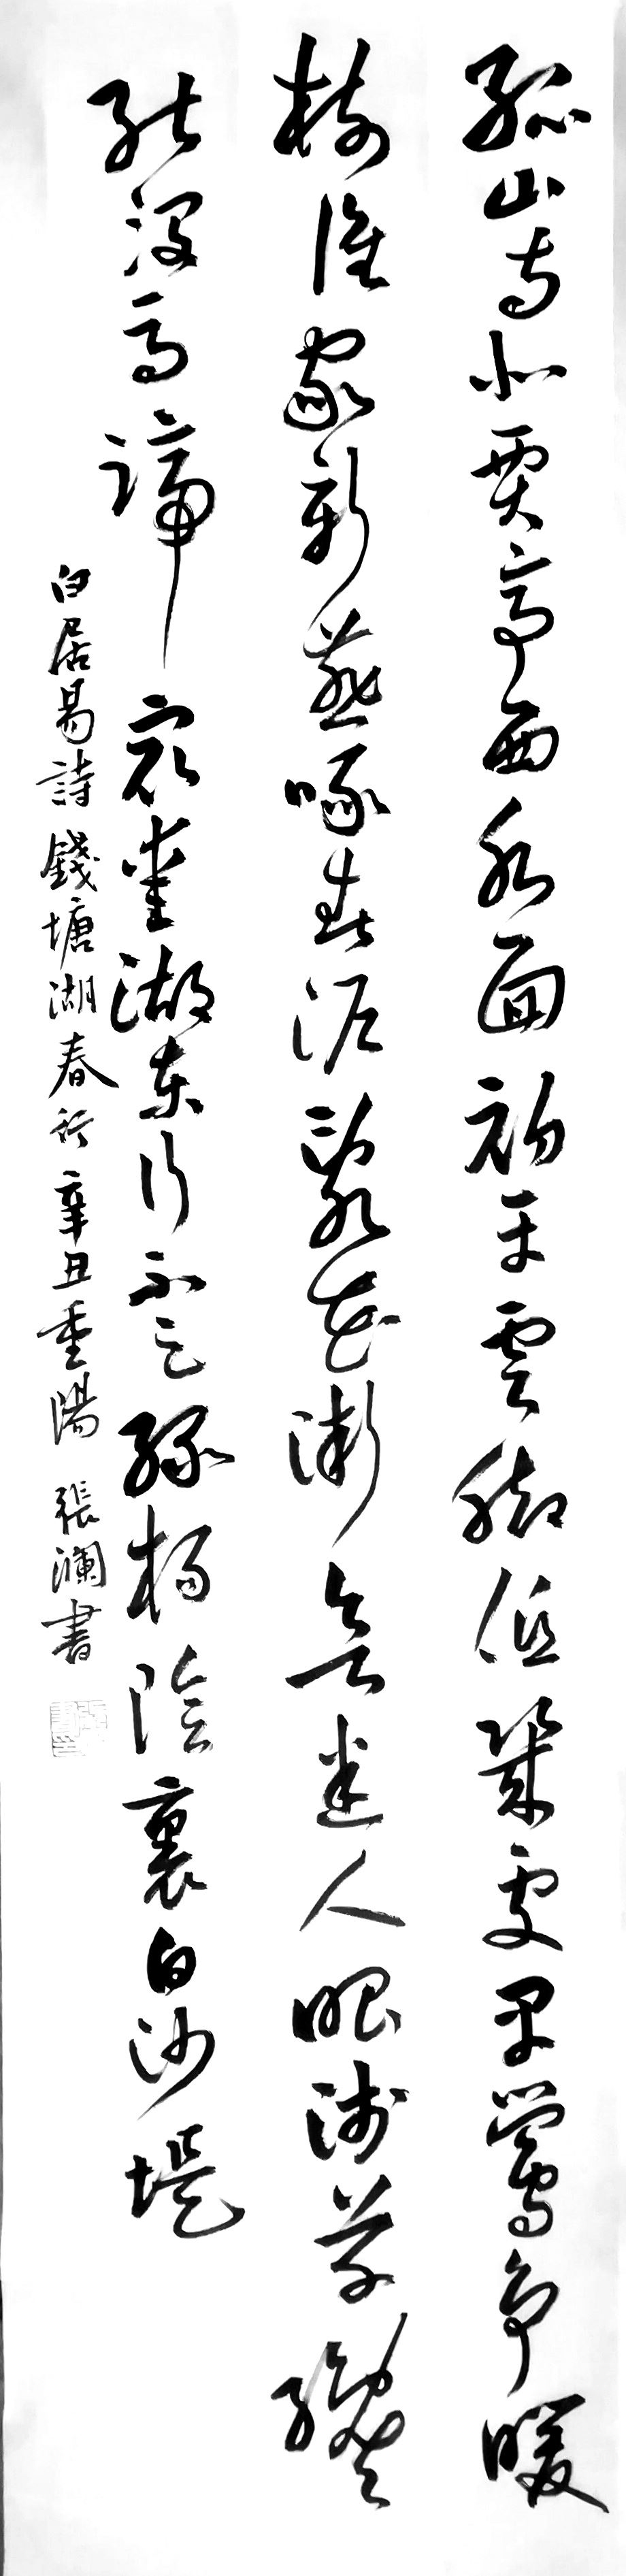 孤山寺北賈亭西水面初平雲腳低幾處早鶯爭暖
樹誰家新燕啄春泥亂花漸欲迷人眼淺草纔
能沒馬蹄最愛湖東行不足綠楊陰裏白沙堤
白居易詩 錢塘湖春行 辛丑重陽 張瀾書